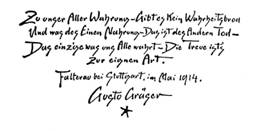 Zu unser Aller Wahrung – Gibt es Kein Wahrheitsbrod
Und was des Einen Nahrung – Das ist des Andern Tod –
Das einzige was uns Alle wahrt – Die Treue ists
Zur eignen Art.
Falterau bei Stuttgart, im Mai 1914.
Gusto Gräser